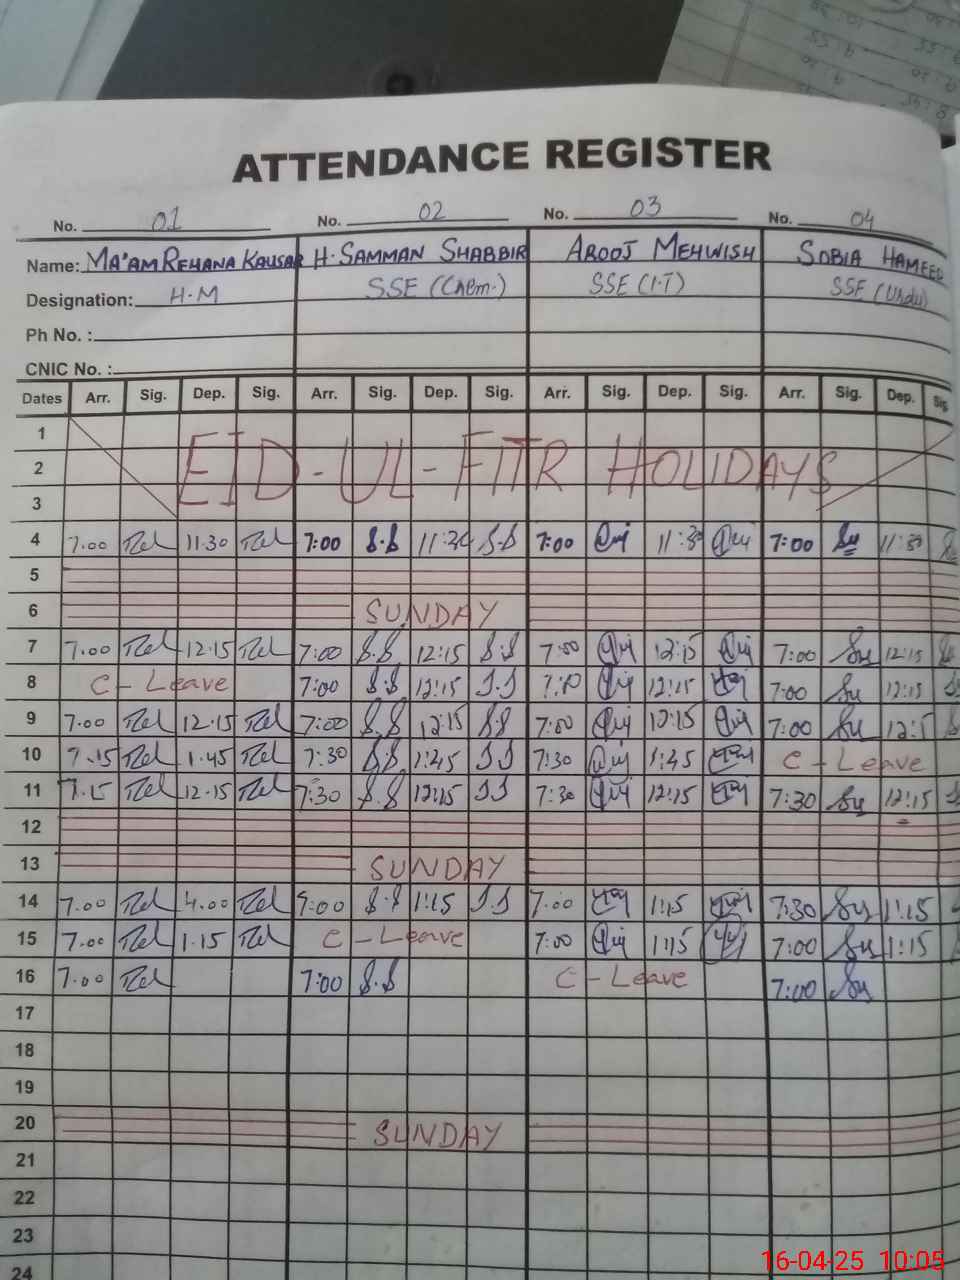 ATTENDANCE REGISTER
No. 01 No. 02 No. 03 No. 04
Name: MA'AM REHANA KAUSAR H. SAMMAN SHABBIR AROOJ MEHWISH SOBIA HAMEED
Designation: H.M SSE (Chem.) SSE (I.T) SSE (Urdu)
Ph No. :
CNIC No. :
Dates Arr. Sig. Dep. Sig. Arr. Sig. Dep. Sig. Arr. Sig. Dep. Sig. Arr. Sig. Dep. Sig
1
2 EID-UL-FITR HOLIDAYS
3
4 7.00 11.30 7:00 S.S 11:30 S.S 7:00 11:30 7:00 11:30
5
6 SUNDAY
7 7.00 12.15 7:00 S.S 12:15 S.S 7:00 12:15 7:00 12:15
8 C-Leave 7:00 S.S 12:15 S.S 12:15 7:00 12:15
9 7.00 12.15 7:00 S.S 12:15 S.S 7:00 12:15 7:00
10 7.15 1.45 7:30 S.S 1:45 S.S 7:30 1:45 C-Leave
11 7.15 12.15 7:30 S.S 12:15 S.S 7:30 12:15 7:30 12:15
12
13 SUNDAY
14 7.00 4.00 S.S 1:15 S.S 7:00 1:15 7:30 1:15
15 7.00 1.15 C-Leave 7:00 1:15 7:00 1:15
16 7.00 7:00 S.S C-Leave 7:00
17
18
19
20 SUNDAY
21
22
23
24
16-04-25 10:05